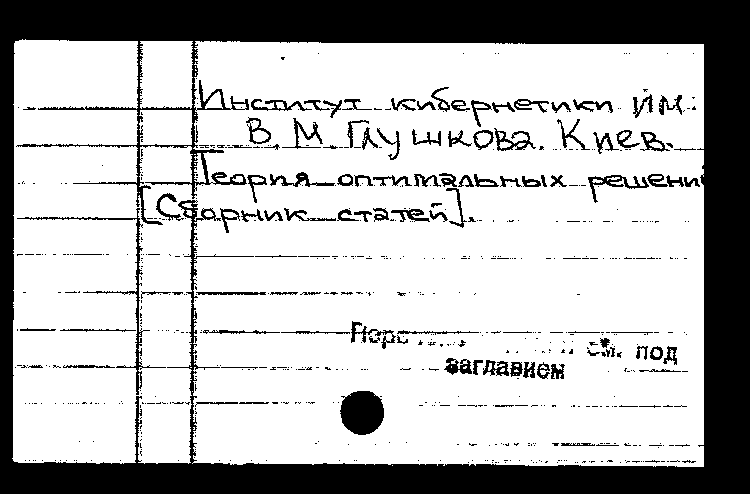 Институт кибернетики им.
В. М. Глушкова. Киев.
Теория оптимальных решений
[Сборник статей].
см. под
заглавием